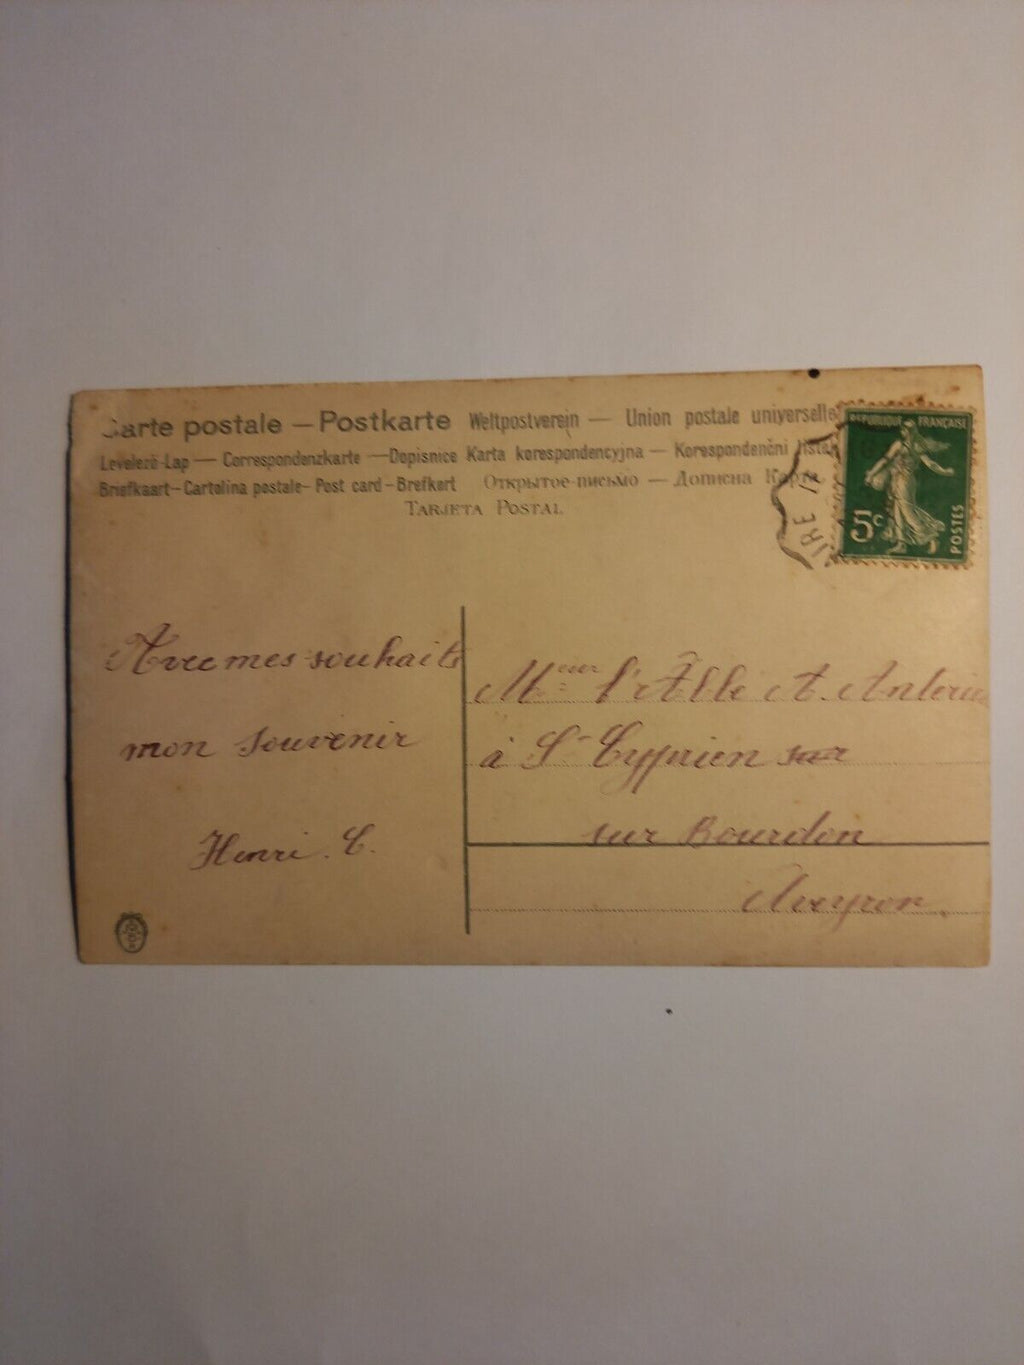 Carte postale — Postkarte Weltpostverein — Union postale universelle
Levelező-Lap — Correspondenzkarte — Dopisnice Karta korespondencyjna — Korespondenční listek
Briefkaart – Cartolina postale – Post card – Brefkort Открытое-письмо — Дописна Карта
TARJETA POSTAL
REPUBLIQUE FRANÇAISE
5c
POSTES
Avec mes souhaits
mon souvenir
Henri. C.
Mr l'Abbé A.
à St Cyprien sur
sur Bourdon
Aveyron